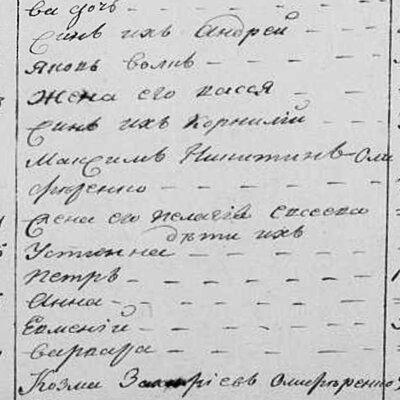 ва дочь
Синъ ихъ Андрей
Яковъ волкъ
Жена его васся
Синъ ихъ Корнилій
Максимъ Никитинъ Оли
ференко
Жена его Пелагія евсеева
дѣти ихъ
Устинна
Петръ
Анна
Евменій
варвара
Козма Захаріевъ Олиференко